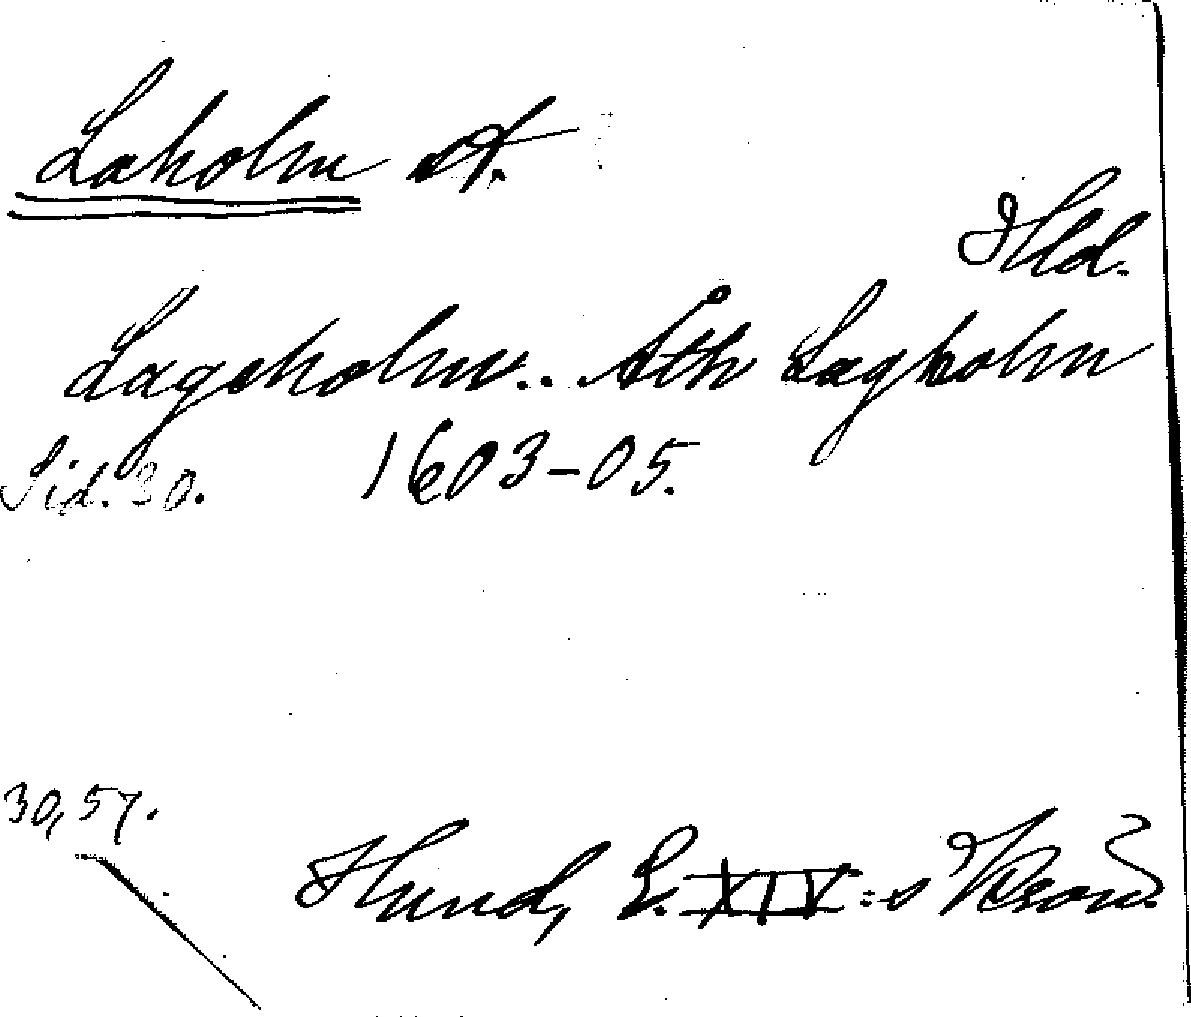 Laholm st.
Hld.
Lageholm.. Åth Lagholm
Sid. 30. 1603-05.
30, 57.
Hund, E. XIV:s Krön.